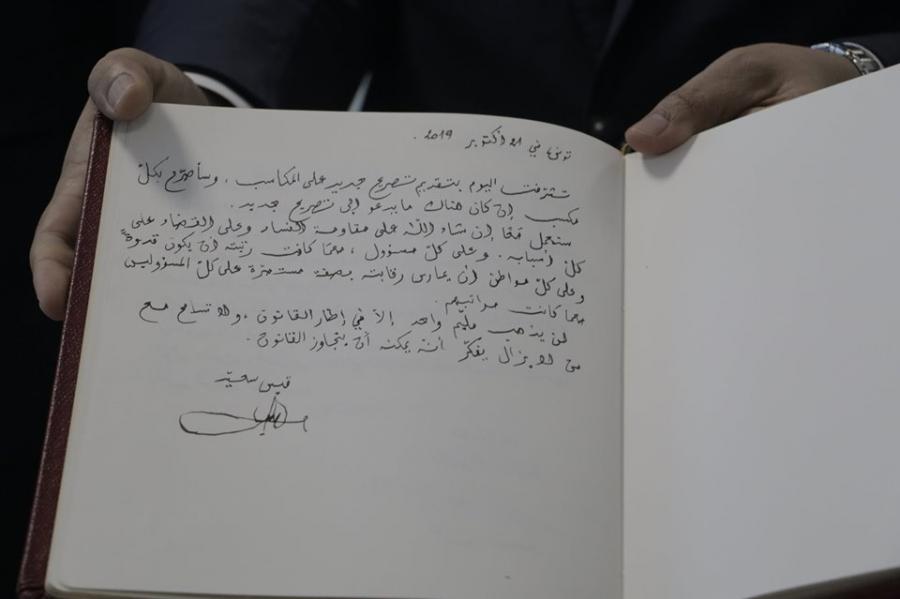 تونس في 21 أكتوبر 2019.
تشرّفت اليوم بتقديم تصريح جديد على المكاسب، وسأصرّح بكلّ
مكسب إن كان هناك ما يدعو إلى تصريح جديد.
سنعمل قطعا إن شاء اللّه على مقاومة الفساد وعلى القضاء على
كلّ أسبابه. وعلى كلّ مسؤول، مهما كانت رتبته أن يكون قدوة
وعلى كلّ مواطن أن يمارس رقابته بصفة مستمرّة على كلّ المسؤولين
مهما كانت مراتبهم.
لن يذهب ملّيم واحد إلاّ في إطار القانون، ولا تسامح مع
من لا يزال يفكّر أنّه يمكنه أن يتجاوز القانون.
قيس سعيّد